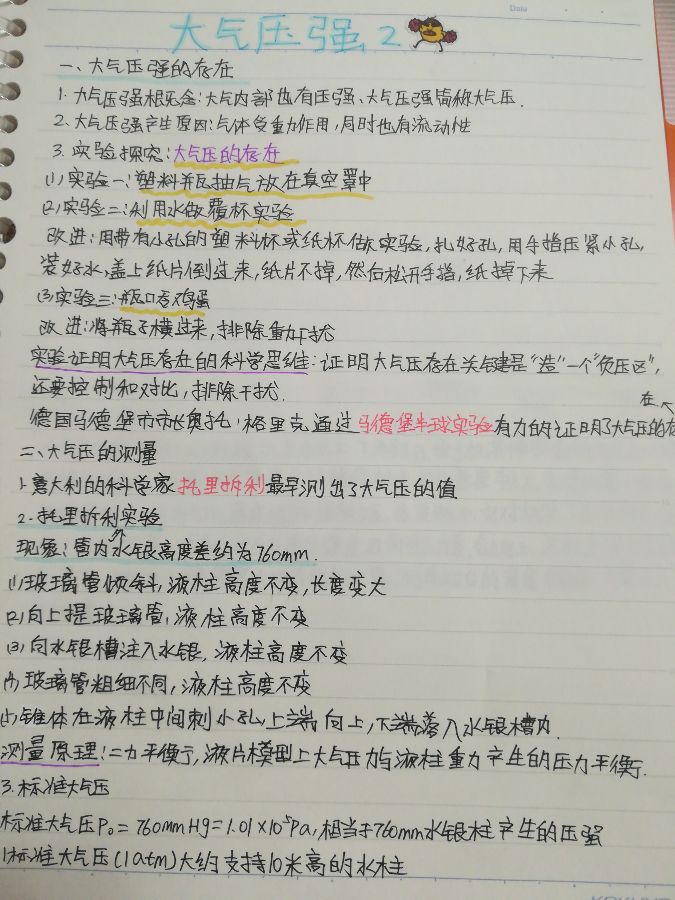 Date
大气压强 2
一、大气压强的存在
1. 大气压强概念:大气内部也有压强、大气压强简称大气压.
2. 大气压强产生原因:气体受重力作用,同时也有流动性
3. 实验探究:大气压的存在
(1)实验一:塑料瓶抽气放在真空罩中
(2)实验二:利用水做覆杯实验
改进:用带有小孔的塑料杯或纸杯做实验,扎好孔,用手指压紧小孔,
装好水,盖上纸片倒过来,纸片不掉,然后松开手指,纸掉下来
(3)实验三:瓶口吞鸡蛋
改进:将瓶子横过来,排除重力干扰
实验证明大气压存在的科学思维:证明大气压存在关键是“造”一个“负压区”,
还要控制和对比,排除干扰.
德国马德堡市市长奥托·格里克通过马德堡半球实验有力的证明了大气压的存
在
二、大气压的测量
1. 意大利的科学家托里拆利最早测出了大气压的值
2. 托里拆利实验
现象:管内外水银高度差约为760mm.
(1)玻璃管倾斜,液柱高度不变,长度变大
(2)向上提玻璃管,液柱高度不变
(3)向水银槽注入水银,液柱高度不变
(4)玻璃管粗细不同,液柱高度不变
(5)锥体在液柱中间刺小孔,上端向上,下端落入水银槽内.
测量原理:二力平衡,液片模型上大气压力与液柱重力产生的压力平衡.
3. 标准大气压
标准大气压P₀=760mmHg=1.01×10⁵Pa,相当于760mm水银柱产生的压强
1标准大气压(1atm)大约支持10米高的水柱